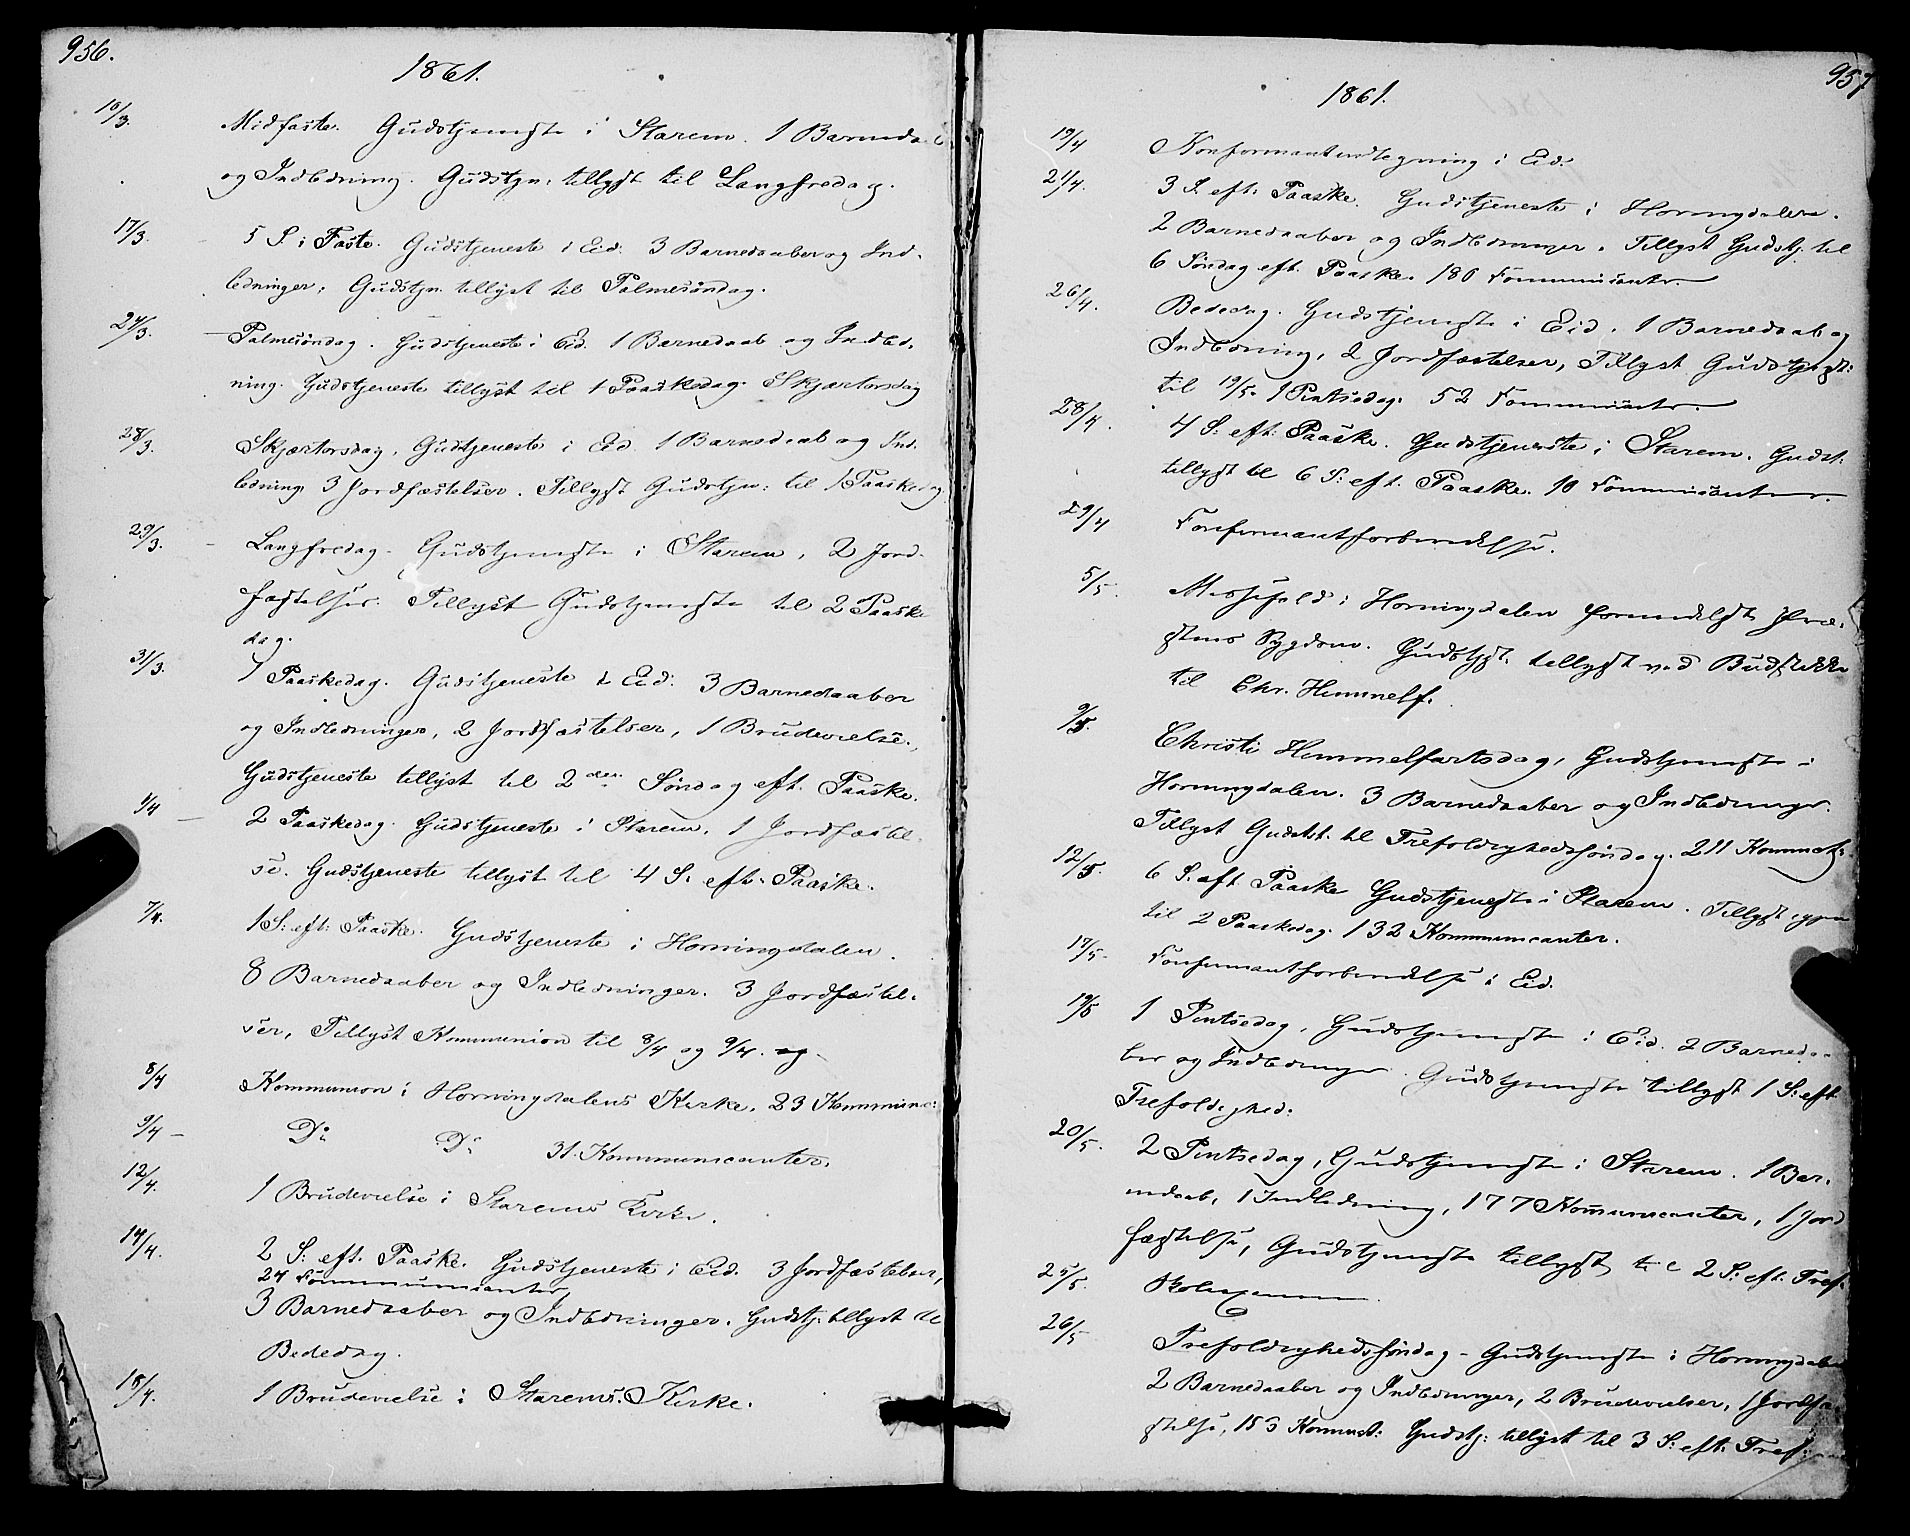 956.
1861.
10/3. Midfaste. Gudstjeneste i Starem. 1 Barneda
og Indledning. Gudstjn: tillyst til Langfredag.
17/3. 5 S. i Faste. Gudstjeneste i Eid. 3 Barnedaaber og Ind-
ledninger, Gudstjn. tillyst til Palmesøndag.
24/3. Palmesøndag. Gudstjeneste i Eid. 1 Barnedaab og Indled-
ning. Gudstjeneste tillyst til 1 Paaskedag. Skjærtorsdag
28/3. Skjærtorsdag, Gudstjeneste i Eid. 1 Barnedaab og Ind-
ledning 3 Jordfæstelser. Tillyst Gudstjn: til 1 Paaskedag
29/3. Langfredag - Gudstjeneste i Starem, 2 Jord-
fæstelser. Tillyst Gudstjeneste til 2 Paaske
dag.
31/3. 1 Paaskedag. Gudstjeneste i Eid. 3 Barnedaaber
og Indledninger, 2 Jordfæstelser, 1 Brudevielse.
Gudstjeneste tillyst til 2den Søndag eft. Paaske.
1/4 2 Paaskedag. Gudstjeneste i Starem, 1 Jordfæstel-
se. Gudstjeneste tillyst til 4 S. eft. Paaske.
7/4. 1 S: eft: Paaske. Gudstjeneste i Horningdalen.
8 Barnedaaber og Indledninger. 3 Jordfæstel-
ser, Tillyst Kommunion til 8/4 og 9/4. og
8/4 Kommunion i Horningdalens Kirke. 23 Kommunic:
9/4 - Do Do 31. Kommunicanter.
12/4. 1 Brudevielse i Starems Kirke.
14/4. 2 S: eft. Paaske. Gudstjeneste i Eid. 3 Jordfæstelser,
24 Kommunicanter,
3 Barnedaaber og Indledninger. Gudstj. tillyst til
Bededag.
18/4. 1 Brudevielse i Starems Kirke.
957
1861.
19/4 Konfirmantindtegning i Eid.
21/4. 3 S. eft: Paaske. Gudstjeneste i Horningdalen.
2 Barnedaaber og Indledninger. Tillyst Gudstj. til
6 Søndag eft. Paaske. 180 Kommunicanter.
26/4. Bededag. Gudstjeneste i Eid. 1 Barnedaab og
Indledning, 2 Jordfæstelser, Tillyst Gudstjenst:
til 19/5. 1 Pintsedag. 52 Kommunicanter.
28/4. 4 S: eft: Paaske. Gudstjeneste i Starem. Gudst:
tillyst til 6 S: eft. Paaske. 10 Kommunicanter.
29/4 Konfirmantforberedelse.
5/5. Messefald i Horningdalen formedelst Præ-
stens Sygdom. Gudstjst. tillyst ved Budstikke
til Chr. Himmelf.
9/5. Christi Himmelfartsdag, Gudstjeneste i
Horningdalen. 3 Barnedaaber og Indledninger.
Tillyst Gudstst. til Trefoldighedssøndag. 211 Kommct:
12/5. 6 S. eft Paaske Gudstjeneste i Starem. Tillyst igjen
til 2 Paaskedag. 132 Kommunicanter.
17/5. Konfirmantforberedelse i Eid.
19/5 1 Pintsedag, Gudstjeneste i Eid. 2 Barneda-
ber og Indledninger. Gudstjeneste tillyst 1 S: eft
Trefoldighed.
20/5. 2 Pintsedag, Gudstjeneste i Starem. 1 Bar-
nedaab, 1 Indledning, 177 Kommunicanter, 1 Jord
fæstelse, Gudstjeneste tillyst til 2 S: eft. Tref:
25/5. Skolexamen
26/5 Trefoldighedssøndag - Gudstjeneste i Horningdalen
2 Barnedaaber og Indledninger, 2 Brudevielser, 1 Jordfæ-
stelse, 153 Kommct: Gudstj: tillyst til 3 S: eft. Tref: